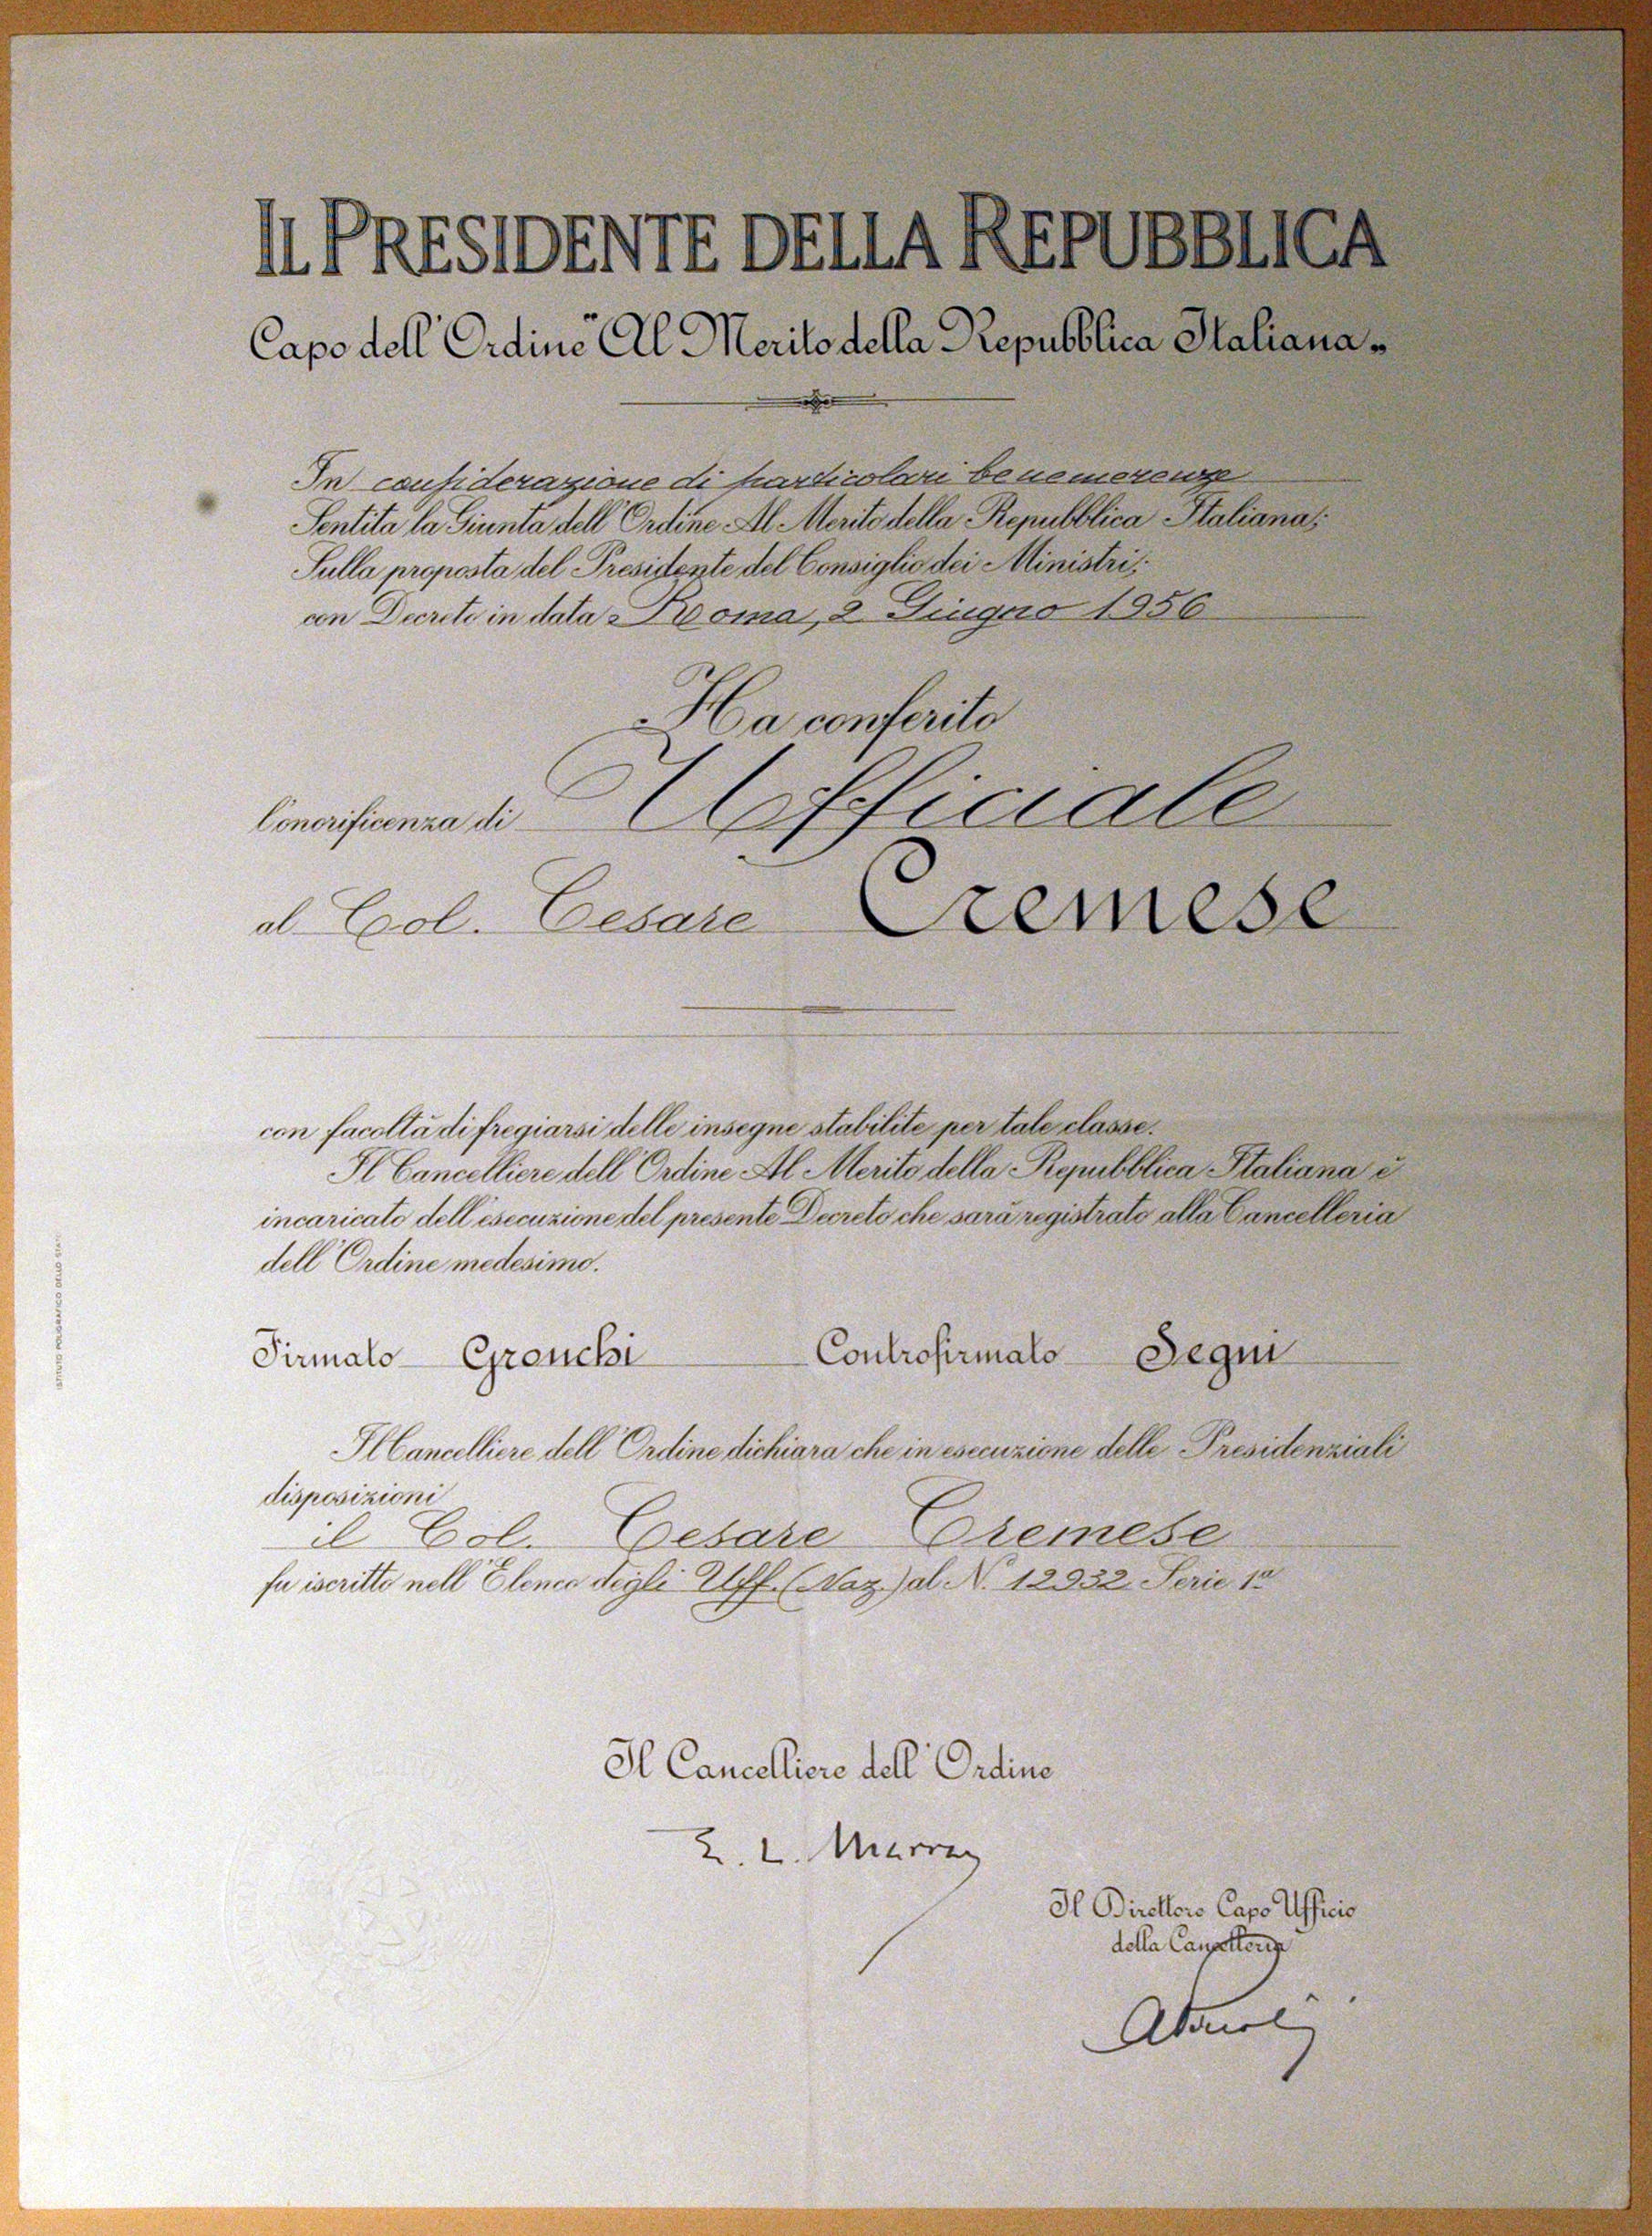 IL PRESIDENTE DELLA REPUBBLICA
Capo dell'Ordine "Al Merito della Repubblica Italiana"
In considerazione di particolari benemerenze
Sentita la Giunta dell'Ordine Al Merito della Repubblica Italiana;
Sulla proposta del Presidente del Consiglio dei Ministri;
con Decreto in data Roma, 2 Giugno 1956
Ha conferito
l'onorificenza di Ufficiale
al Col. Cesare Cremese
con facoltà di fregiarsi delle insegne stabilite per tale classe.
Il Cancelliere dell'Ordine Al Merito della Repubblica Italiana è
incaricato dell'esecuzione del presente Decreto che sarà registrato alla Cancelleria
dell'Ordine medesimo.
Firmato Gronchi Controfirmato Segni
Il Cancelliere dell'Ordine dichiara che in esecuzione delle Presidenziali
disposizioni
il Col. Cesare Cremese
fu iscritto nell'Elenco degli Uff. (Naz.) al N. 12932 Serie 1a
Il Cancelliere dell'Ordine
Il Direttore Capo Ufficio
della Cancelleria
ISTITUTO POLIGRAFICO DELLO STATO